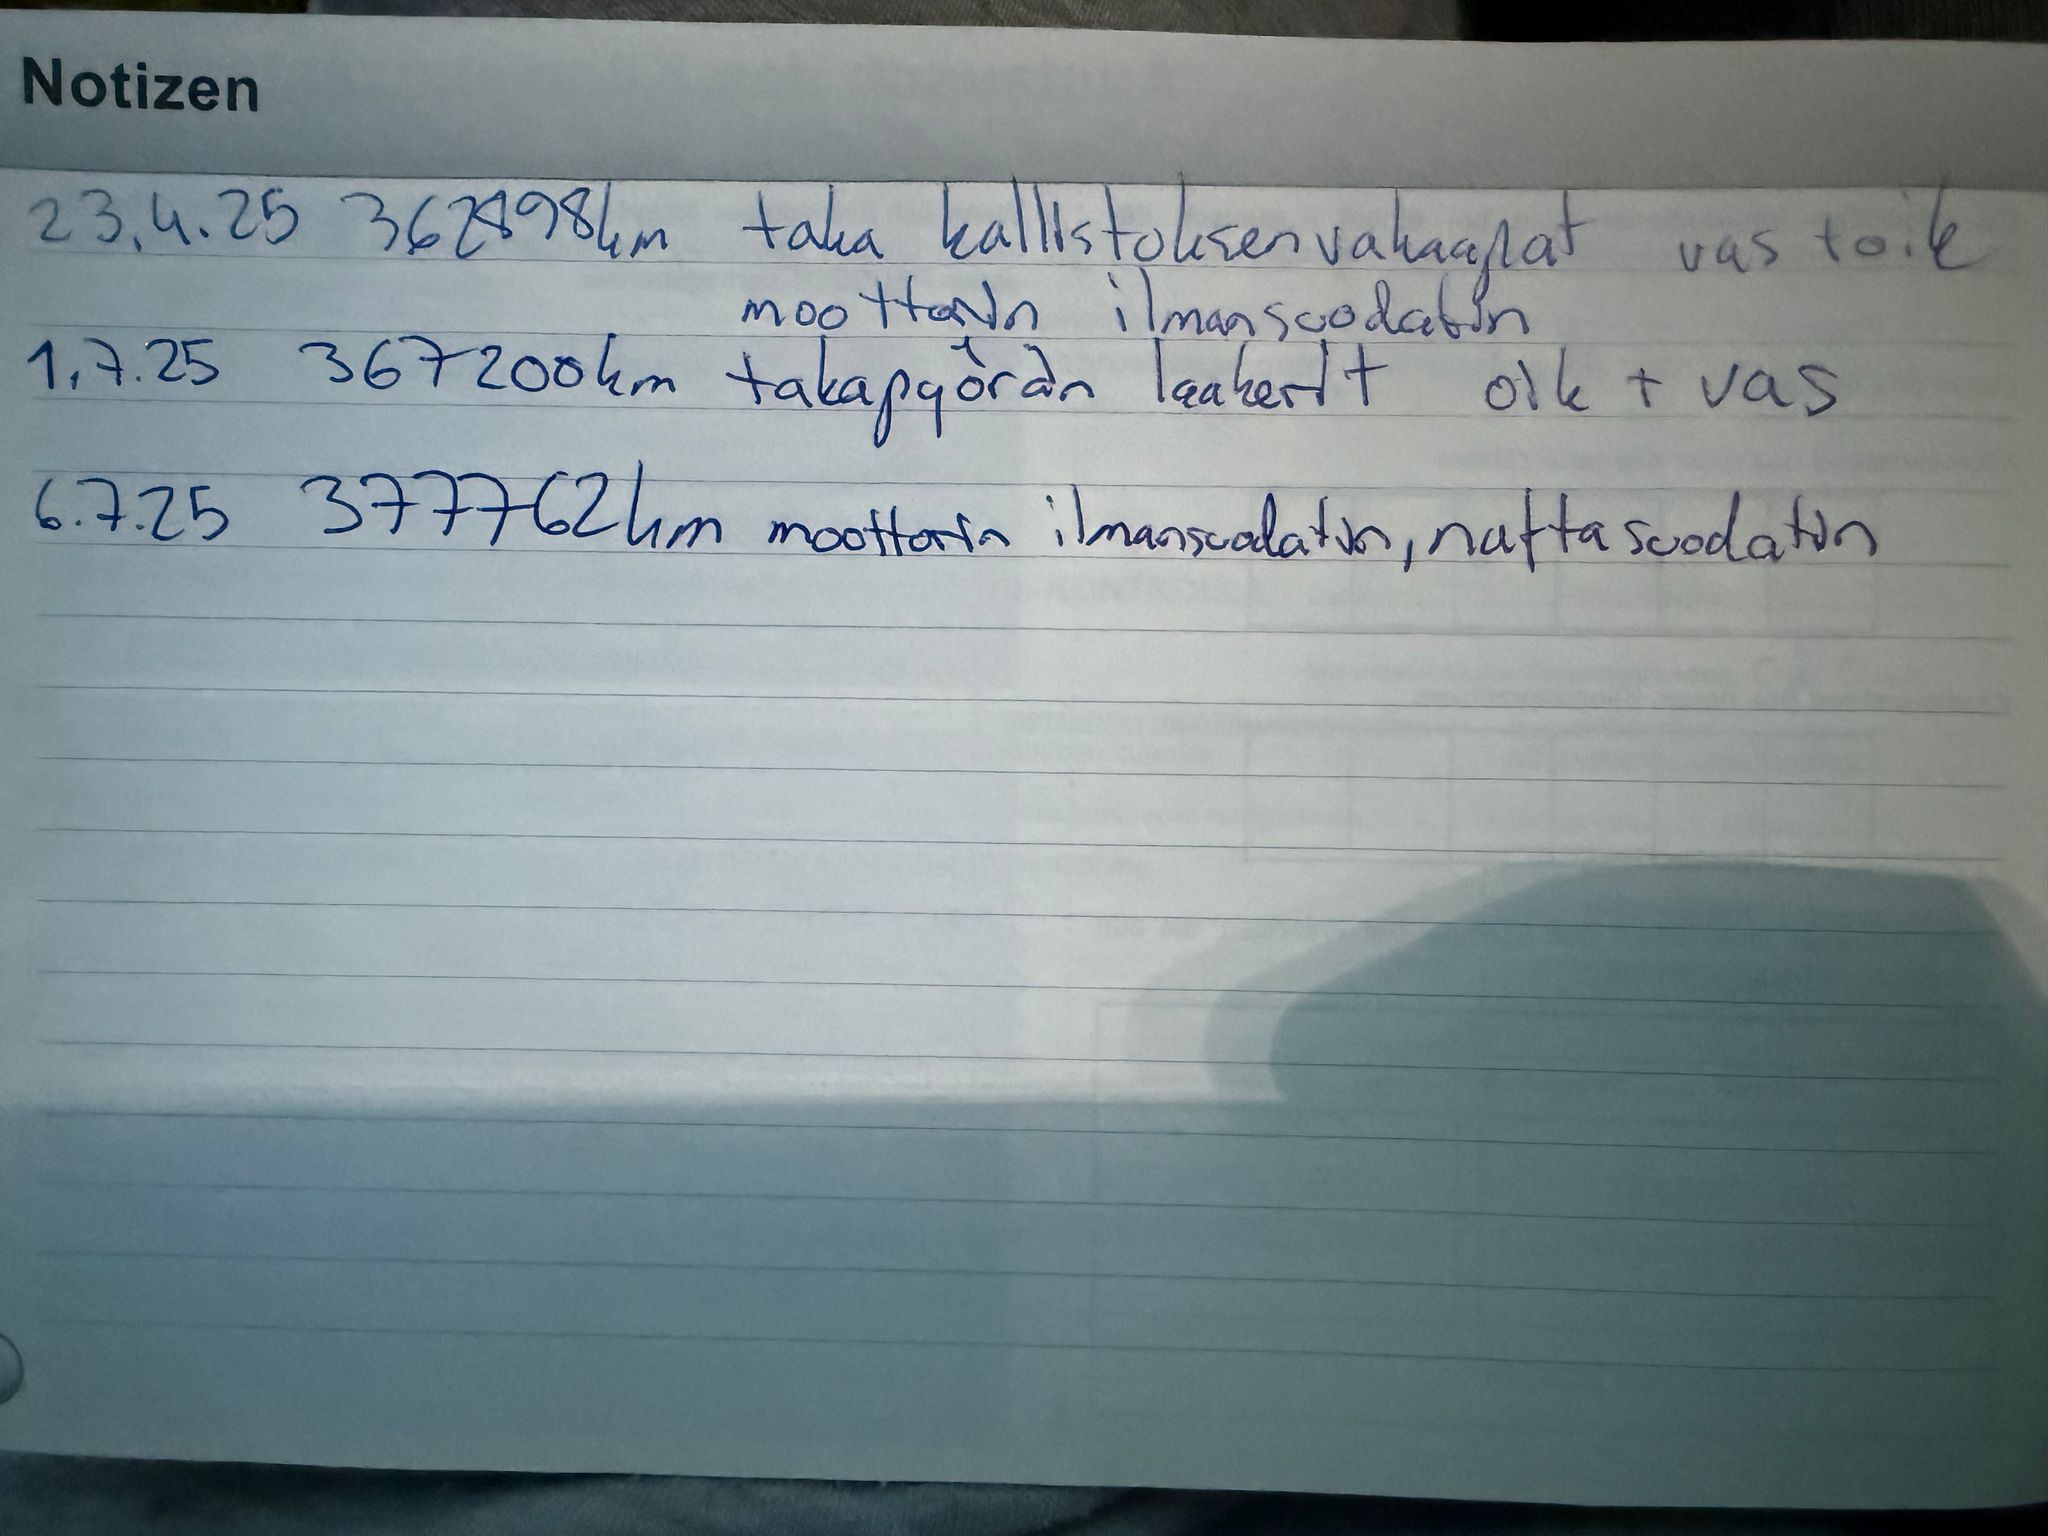 Notizen
23.4.25 362898km taka kallistoksenvakaajat vas + oik
moottorin ilmansuodatin
1.7.25 367200km takapyörän laakerit oik + vas
6.7.25 377762km moottorin ilmansuodatin, naftasuodatin